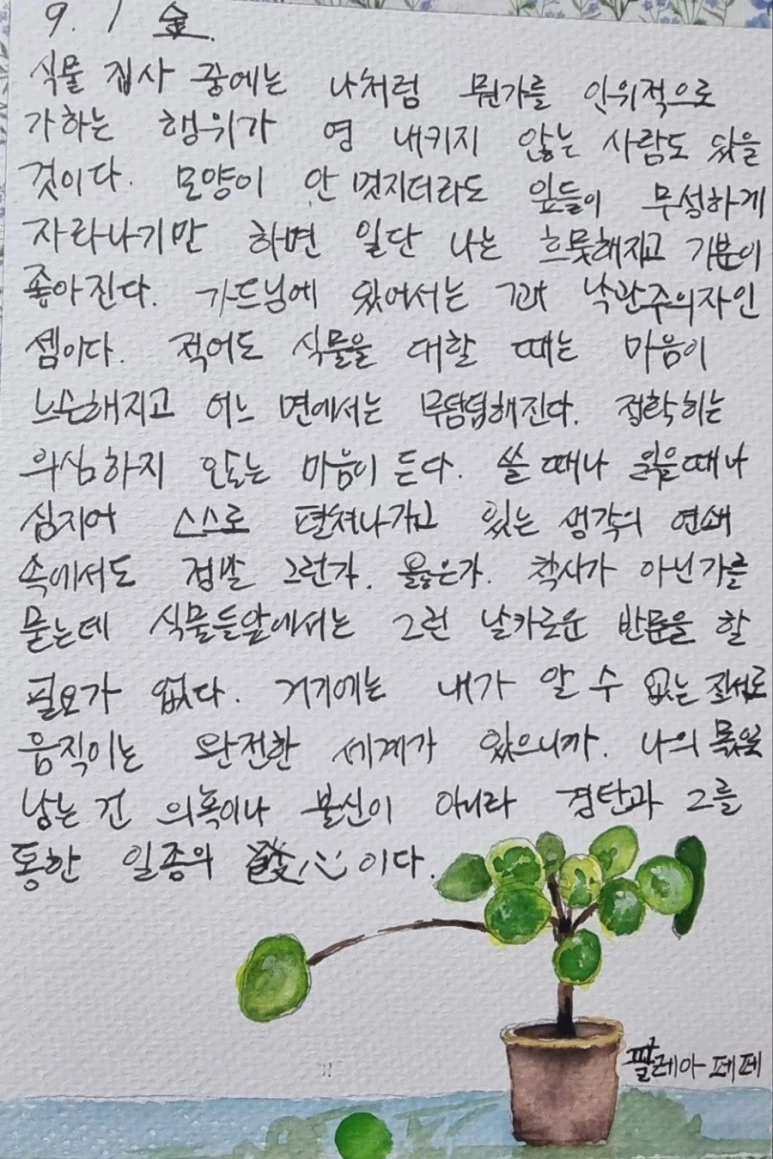 9. 1 金.
식물 집사 중에는 나처럼 뭔가를 인위적으로
가하는 행위가 영 내키지 않는 사람도 있을
것이다. 모양이 안 멋지더라도 잎들이 무성하게
자라나기만 하면 일단 나는 흐뭇해지고 기분이
좋아진다. 가드닝에 있어서는 꽤 낙관주의자인
셈이다. 적어도 식물을 대할 때는 마음이
느슨해지고 어느 면에서는 무덤덤해진다. 정확히는
의심하지 않는 마음이 든다. 쓸 때나 읽을때나
심지어 스스로 펼쳐나가고 있는 생각의 연쇄
속에서도 정말 그런가. 옳은가. 착시가 아닌가를
묻는데 식물들앞에서는 그런 날카로운 반문을 할
필요가 없다. 거기에는 내가 알 수 없는 질서로
움직이는 완전한 세계가 있으니까. 나의 몫은
남는 건 의혹이나 불신이 아니라 경탄과 그를
통한 일종의 發心이다.
필레아 페페